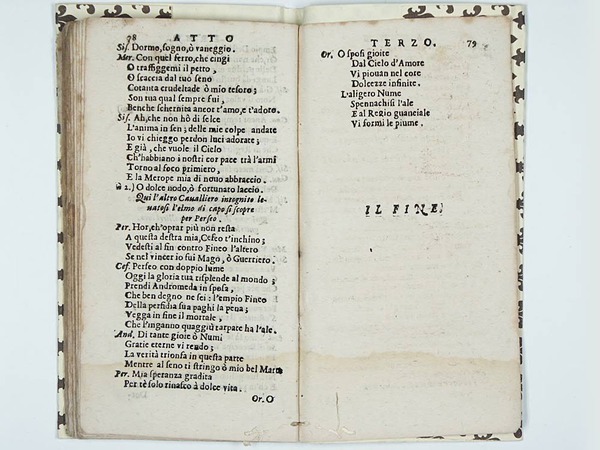 78 ATTO
Sis. Dormo, sogno, ò vaneggio.
Mer. Con quel ferro, che cingi
O traffiggemi il petto,
O scaccia dal tuo seno
Cotanta crudeltade ò mio tesoro;
Son tua qual sempre fui,
Benche schernita ancor t'amo, e t'adoro.
Sis. Ah, che non hò di selce
L'anima in sen; delle mie colpe andate
Io vi chieggo perdon luci adorate;
E già, che vuole il Cielo
Ch'habbiano i nostri cor pace trà l'armi
Torno al foco primiero,
E la Merope mia di novo abbraccio.
à 2.) O dolce nodo, ò fortunato laccio.
Qui l'altro Cavalliero incognito le-
vatosi l'elmo di capo si scopre
per Perseo.
Per. Hor, ch'oprar più non resta
A questa destra mia, Cefeo t'inchino;
Vedesti al fin contro Fineo l'altero
Se nel vincer io sui Mago, ò Guerriero.
Cef. Perseo con doppio lume
Oggi la gloria tua risplende al mondo;
Prendi Andromeda in sposa,
Che ben degno ne sei: l'empio Fineo
Della perfidia sua paghi la pena;
Vegga in fine il mortale,
Che l'inganno quaggiù tarpate ha l'ale.
And. Di tante gioie ò Numi
Gratie eterne vi rendo;
La verità trionfa in questa parte
Mentre al seno ti stringo ò mio bel Marte
Per. Mia speranza gradita
Per tè solo rinasco à dolce vita.
Or. O
TERZO. 79
Or. O sposi gioite
Dal Cielo d'Amore
Vi piovan nel core
Dolcezze infinite.
L'aligero Nume
Spennachisi l'ale
E al Regio guanciale
Vi formi le piume.
IL FINE.